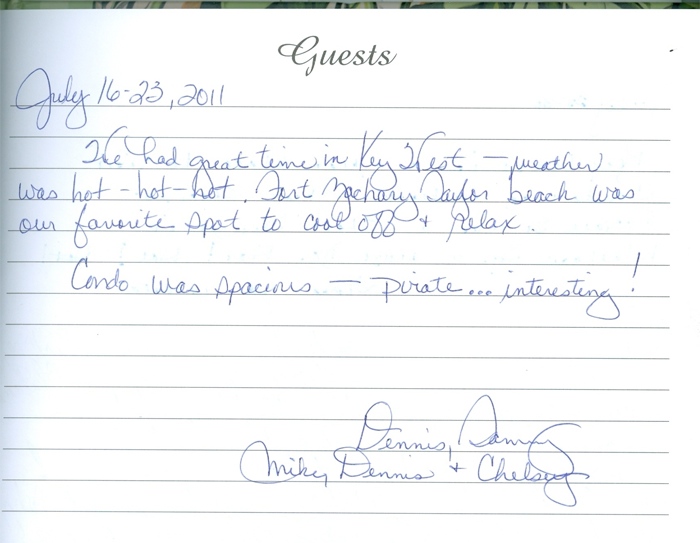 Guests
July 16-23, 2011
We had great time in Key West — weather
was hot - hot - hot. Fort Zachary Taylor beach was
our favorite spot to cool off + relax.
Condo was spacious — pirate... interesting!
Dennis,
Mike, Dennis + Chelsey